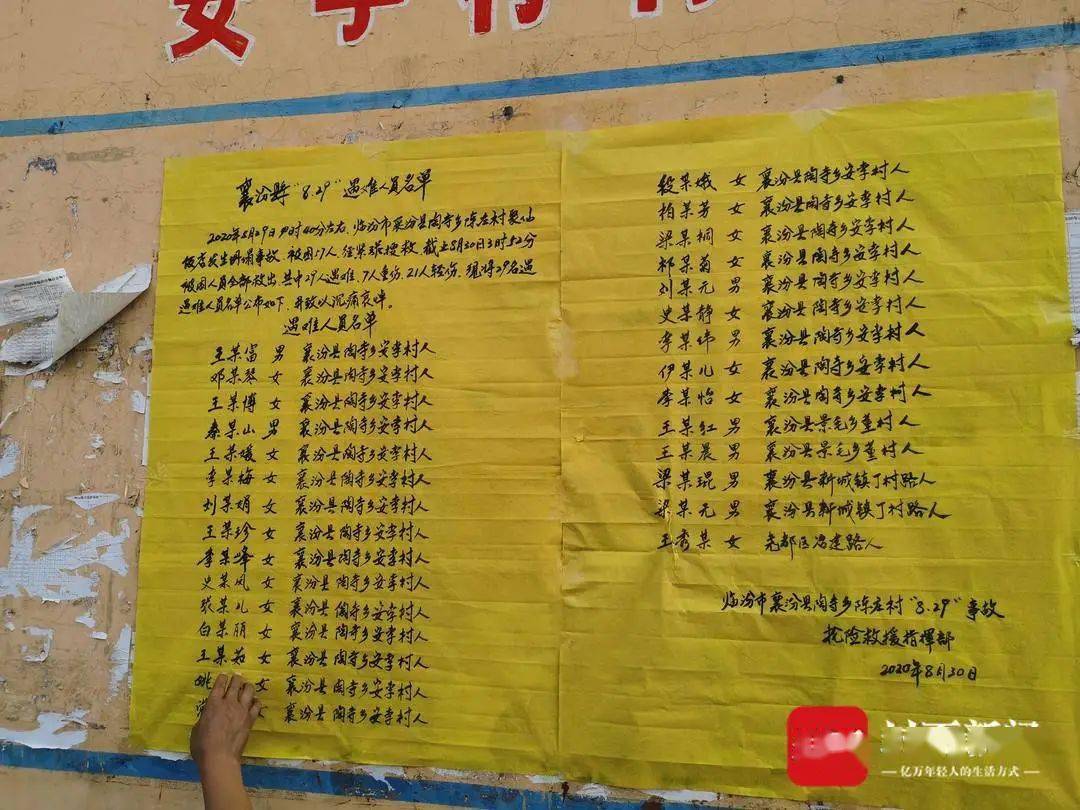 安李村村
襄汾县“8.29”遇难人员名单
2020年8月29日9时40分左右，临汾市襄汾县陶寺乡陈庄村聚仙
饭店发生坍塌事故 被困57人，经紧张搜救，截止8月30日3时52分
被困人员全部救出，其中29人遇难，7人重伤，21人轻伤，现将29名遇
遇难人员名单公布如下，并致以沉痛哀悼。
遇难人员名单
王某富 男 襄汾县陶寺乡安李村人
邓某琴 女 襄汾县陶寺乡安李村人
王某博 女 襄汾县陶寺乡安李村人
秦某山 男 襄汾县陶寺乡安李村人
王某媛 女 襄汾县陶寺乡安李村人
李某梅 女 襄汾县陶寺乡安李村人
刘某娟 女 襄汾县陶寺乡安李村人
王某珍 女 襄汾县陶寺乡安李村人
李某峰 女 襄汾县陶寺乡安李村人
史某凤 女 襄汾县陶寺乡安李村人
张某儿 女 襄汾县陶寺乡安李村人
白某丽 女 襄汾县陶寺乡安李村人
王某茹 女 襄汾县陶寺乡安李村人
姚 女 襄汾县陶寺乡安李村人
襄汾县陶寺乡安李村人
段某娥 女 襄汾县陶寺乡安李村人
柏某芳 女 襄汾县陶寺乡安李村人
梁某桐 女 襄汾县陶寺乡安李村人
祁某菊 女 襄汾县陶寺乡安李村人
刘某元 男 襄汾县陶寺乡安李村人
史某静 女 襄汾县陶寺乡安李村人
李某炜 男 襄汾县陶寺乡安李村人
伊某儿 女 襄汾县陶寺乡安李村人
李某怡 女 襄汾县陶寺乡安李村人
王某红 男 襄汾县景毛乡董村人
王某晨 男 襄汾县景毛乡董村人
梁某琨 男 襄汾县新城镇丁村路人
梁某元 男 襄汾县新城镇丁村路人
王秀某 女 尧都区冶建路人
临汾市襄汾县陶寺乡陈庄村“8.29”事故
抢险救援指挥部
2020年8月30日
封面新闻
亿万年轻人的生活方式